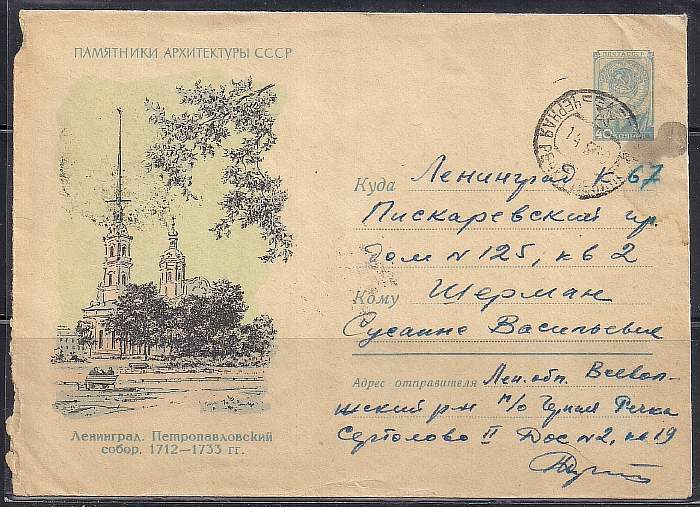 ПАМЯТНИКИ АРХИТЕКТУРЫ СССР
ПОЧТА СССР
40
ЧЕРНАЯ РЕЧ
14
Куда Ленинград К-67
Пискаревский пр.
дом N 125, кв 2
Кому Шерман
Сусанне Васильевне
Адрес отправителя Лен. обл. Всевол-
жский р-н п/о Черная Речка
Сертолово II Дос N2, кв 19
Ленинград. Петропавловский
собор. 1712—1733 гг.